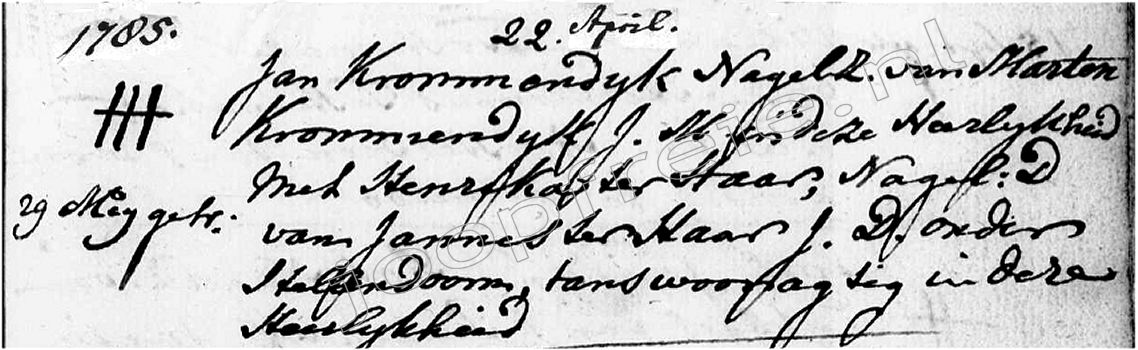 1785. 22. April.
Jan Krommendyk Nagel Z. van Marten
Krommendyk J. M. in deze Heerlykheid
met Henrika ter Haar, Nagel: D
29 Mey getr. van Jannes ter Haar J. D. onder
Apeldoorn, tans woonagtig in deze
Heerlykheid
joopreis.nl